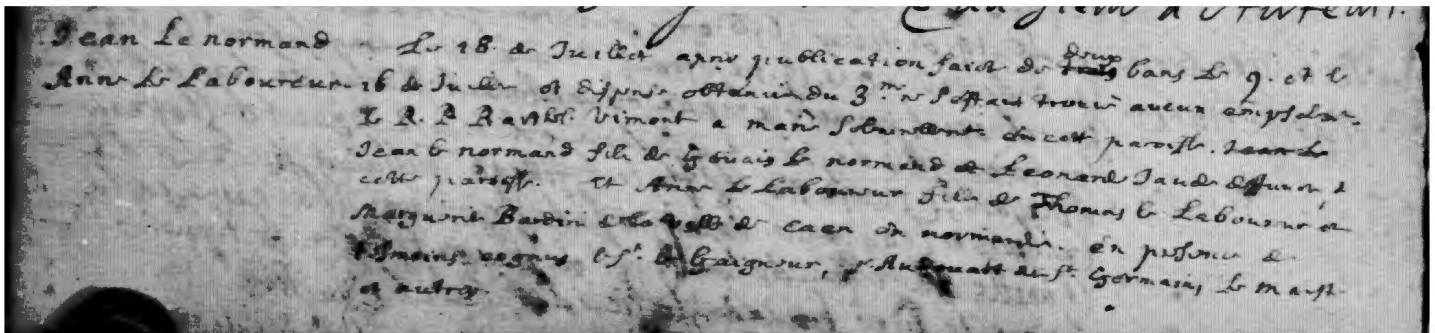 d'Auteuil.
Jean Le normand
Anne Le Laboureur.
Le 18. de Juillet apres publication faict de deux bans Le 9. et le
16 de Juillet et dispense obtenüe du 3.me ne s'estant trouvé aucun empeschem.
Le R. P. Barthel. Vimont a marié solennellement en cette paroisse. Jean Le
Jean le normand fils de Gervais Le normand et Leonard Jaude deffunct
cette paroisse. Et Anne Le Laboureur fille de Thomas le Laboureur et
Marguerite Bardin de la ville de Caen en normandie. en presence de
tesmoins cognus le Sr. de St. Germain, Le maist
et autres.